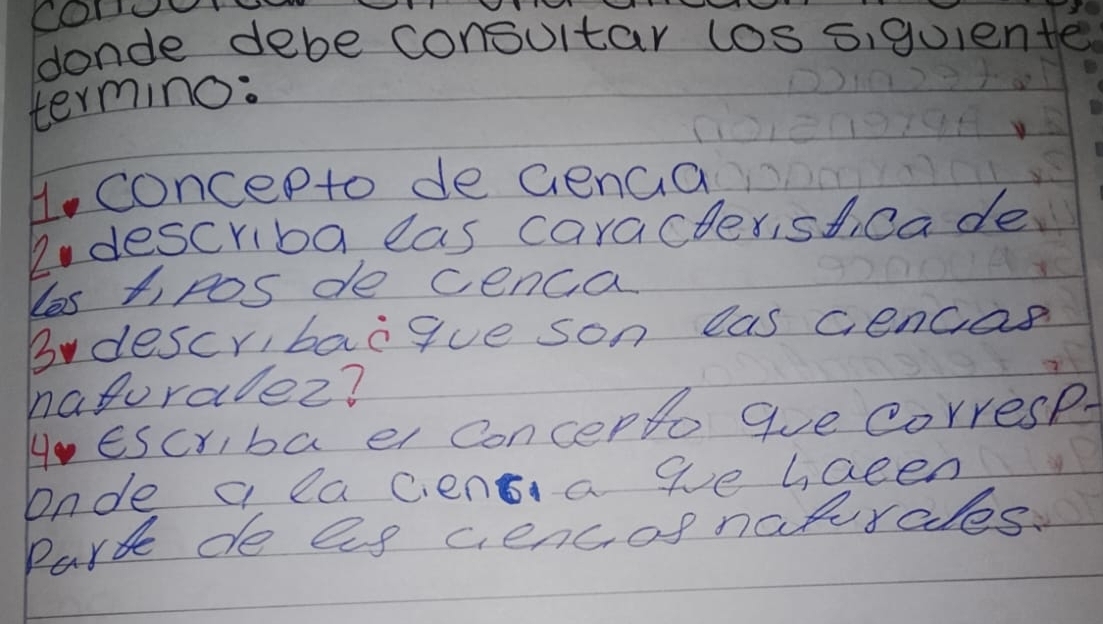 donde debe consultar los siguiente
termino:
1. concepto de ciencia
2. describa las caracteristica de
los tipos de cenca
3. describa ¿que son las ciencias
naturalez?
4. Escriba el concepto que corresp-
onde a la ciencia que hacen
Parte de las ciencias naturales.